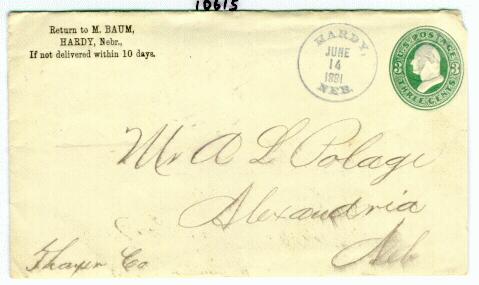 10615
Return to M. BAUM,
HARDY, Nebr.,
If not delivered within 10 days.
HARDY,
JUNE
14
1881
NEB.
U.S. POSTAGE
3 3
THREE CENTS
Mr A L Polage
Alexandria
Neb
Thayer Co